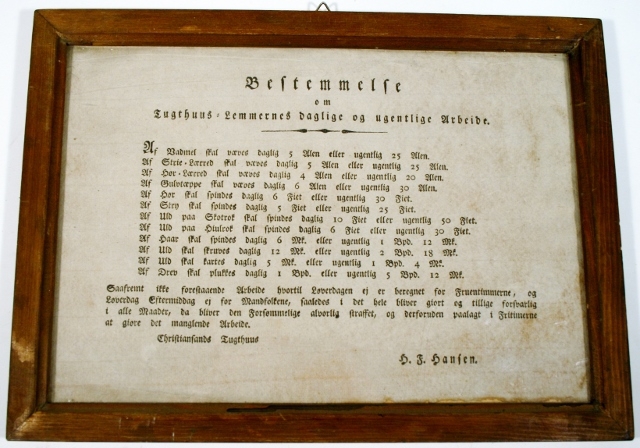 Bestemmelse
om
Tugthuus-Lemmernes daglige og ugentlige Arbeide.
Af Vadmel skal væves daglig 5 Alen eller ugentlig 25 Alen.
Af Strie-Lærred skal væves daglig 5 Alen eller ugentlig 25 Alen.
Af Hør-Lærred skal væves daglig 4 Alen eller ugentlig 20 Alen.
Af Gulvtæppe skal væves daglig 6 Alen eller ugentlig 30 Alen.
Af Hør skal spindes daglig 6 Fiet eller ugentlig 30 Fiet.
Af Stry skal spindes daglig 5 Fiet eller ugentlig 25 Fiet.
Af Uld paa Skotrok skal spindes daglig 10 Fiet eller ugentlig 50 Fiet.
Af Uld paa Hiulrok skal spindes daglig 6 Fiet eller ugentlig 30 Fiet.
Af Haar skal spindes daglig 6 Mk. eller ugentlig 1 Bpd. 12 Mk.
Af Uld skal skrues daglig 12 Mk. eller ugentlig 2 Bpd. 18 Mk.
Af Uld skal kartes daglig 5 Mk. eller ugentlig 1 Bpd. 4 Mk.
Af Drev skal plukkes daglig 1 Bpd. eller ugentlig 5 Bpd. 12 Mk.
Saafremt ikke forestaaende Arbeide hvortil Løverdagen ei er beregnet for Fruentimmerne, og
Løverdag Eftermiddag ej for Mandfolkene, saaledes i det hele bliver giort og tillige forsvarlig
i alle Maader, da bliver den Forsømmelige alvorlig straffet, og derforuden paalagt i Fritimerne
at giøre det manglende Arbeide.
Christiansands Tugthuus
H. F. Hansen.